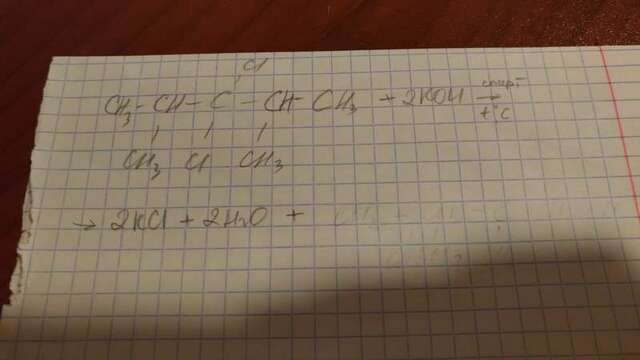 Cl
CH₃-CH-C-CH-CH₃ + 2KOH спирт →
t°C
CH₃ Cl CH₃
→ 2KCl + 2H₂O +